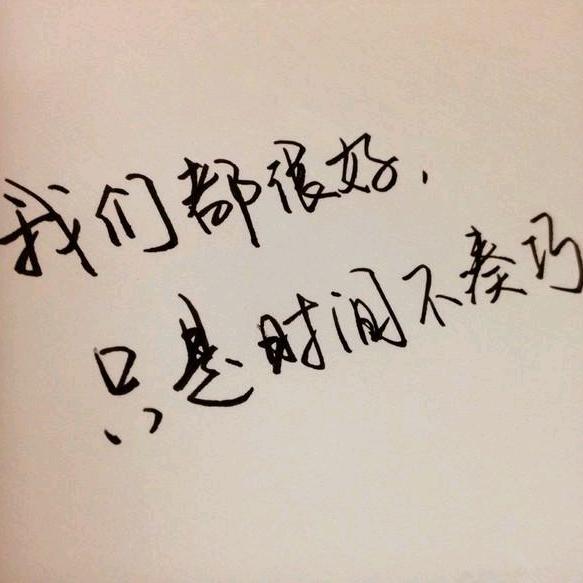 我们都很好.
只是时间不凑巧